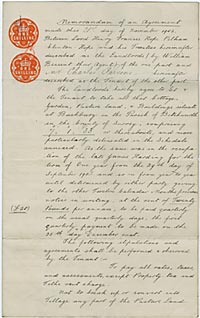 Memorandum of an Agreement
made this day of November 1902
Between Lord Henry Francis Hope Pelham
Clinton Hope and his Trustees hereinafter
described as the Landlords (by William
their Agent) of the one part and
Mr Charles Parsons hereinafter
described as the Tenant of the other part
The Landlords hereby agree to let &
the Tenant to take all that Cottage,
Garden, Pasture Land, & Buildings situate
at in the Parish of Betchworth
in the County of Surrey, comprising
or thereabouts, and more
particularly delineated in the Schedule
annexed. As the same was in the occupation
of the late James for the
term of One year from the 29th day of
September 1902 and so on from year to year
until determined by either party giving
to the other Twelve Calendar Months previous
notice in writing, at the rent of Twenty
(£20) Pounds per annum, to be paid quarterly
on the usual quarterly days, the first
quarterly payment to be made on the
25th day December next.
The following stipulations and
agreements shall be performed & observed
by the Tenant:
To pay all rates, taxes,
and assessments, except Property tax and
Tithe rent charge.
Not to break up or convert into
Tillage any part of the Pasture Land